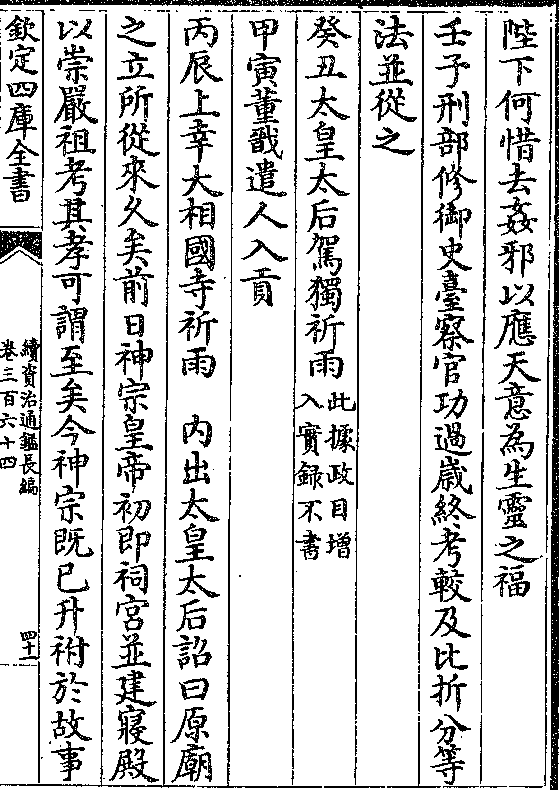 陛下何惜去姦邪以應天意為生靈之福
壬子刑部修御史臺察官功過歳終考較及比折分等
法並從之
癸丑太皇太后駕獨祈雨此據政目增
入實録不書
甲寅董戩遣人入貢
丙辰上幸大相國寺祈雨　内出太皇太后詔曰原廟
之立所從來乆矣前日神宗皇帝初即祠宮並建寢殿
以崇嚴祖考其孝可謂至矣今神宗既已升祔於故事
欽定四庫全書
續資治通鑑長編
卷三百六十四
四十一